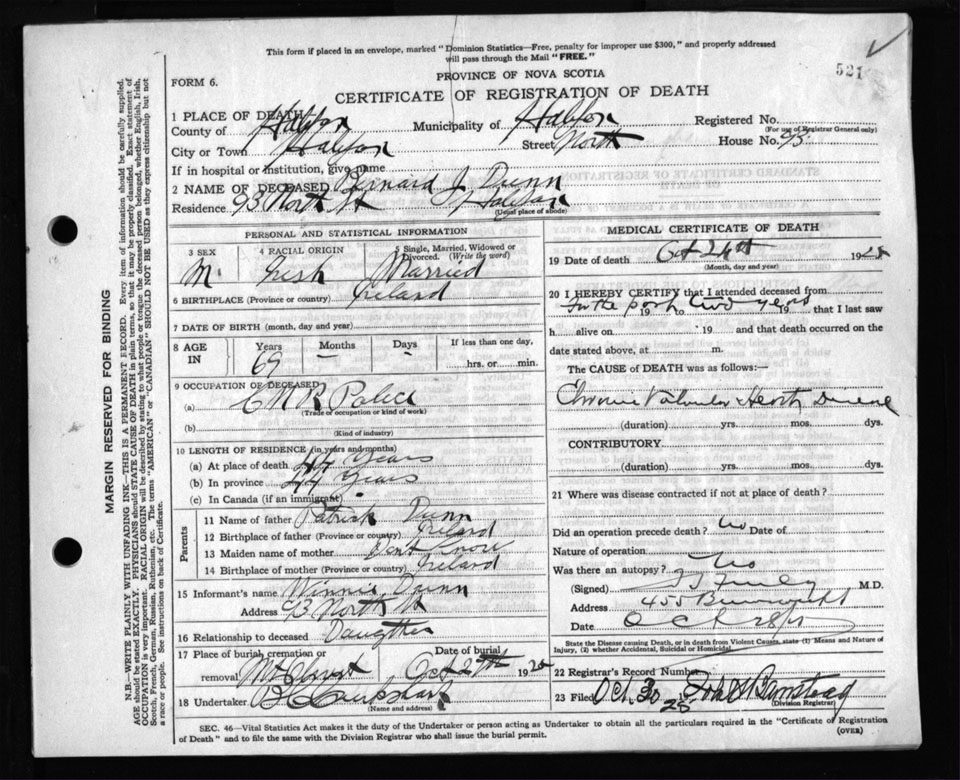 This form if placed in an envelope, marked "Dominion Statistics—Free, penalty for improper use $300," and properly addressed
will pass through the Mail "FREE."
521
FORM 6.
PROVINCE OF NOVA SCOTIA
CERTIFICATE OF REGISTRATION OF DEATH
1 PLACE OF DEATH
County of Halifax Municipality of Halifax Registered No.
(For use of Registrar General only)
City or Town Halifax Street North House No. 93
If in hospital or institution, give name
2 NAME OF DECEASED Bernard J Dunn
Residence 93 North St Halifax
(Usual place of abode)
PERSONAL AND STATISTICAL INFORMATION
3 SEX 4 RACIAL ORIGIN 5 Single, Married, Widowed or Divorced. (Write the word)
M Irish Married
6 BIRTHPLACE (Province or country) Ireland
7 DATE OF BIRTH (month, day and year)
8 AGE IN Years Months Days If less than one day,
69 — — hrs. or min.
9 OCCUPATION OF DECEASED
(a) CNR Police
(Trade of occupation or kind of work)
(b)
(Kind of industry)
10 LENGTH OF RESIDENCE (in years and months)
(a) At place of death 44 years
(b) In province 44 years
(c) In Canada (if an immigrant)
Parents
11 Name of father Patrick Dunn
12 Birthplace of father (Province or country) Ireland
13 Maiden name of mother Dont know
14 Birthplace of mother (Province or country) Ireland
15 Informant's name Winnie Dunn
Address 93 North St
16 Relationship to deceased Daughter
17 Place of burial, cremation or removal Date of burial
Mt Olivet Oct 27th 1928
18 Undertaker
(Name and address)
MEDICAL CERTIFICATE OF DEATH
19 Date of death Oct 24th 1928
(Month, day and year)
20 I HEREBY CERTIFY that I attended deceased from
In the past 19 to two years 19 that I last saw
h alive on 19 and that death occurred on the
date stated above, at m.
The CAUSE of DEATH was as follows:—
Chronic Valvular Heart Disease
(duration) yrs. mos. dys.
CONTRIBUTORY
(duration) yrs. mos. dys.
21 Where was disease contracted if not at place of death?
Did an operation precede death? No Date of
Nature of operation
Was there an autopsy? No
(Signed) M.D.
Address 455
Date
State the Disease causing Death, or in death from Violent Causes, state (1) Means and Nature of
Injury, (2) whether Accidental, Suicidal or Homicidal.
22 Registrar's Record Number
23 Filed Oct. 30 1928 John H Barnstead
(Division Registrar)
SEC. 46—Vital Statistics Act makes it the duty of the Undertaker or person acting as Undertaker to obtain all the particulars required in the "Certificate of Registration
of Death" and to file the same with the Division Registrar who shall issue the burial permit.
(OVER)
MARGIN RESERVED FOR BINDING
N.B.—WRITE PLAINLY WITH UNFADING INK—THIS IS A PERMANENT RECORD. Every item of information should be carefully supplied.
AGE should be stated EXACTLY. PHYSICIANS should STATE CAUSE OF DEATH in plain terms, so that it may be properly classified. Exact statement of
OCCUPATION is very important. RACIAL ORIGIN will be described by stating to what people or tongue the deceased person belonged, whether English, Irish,
Scotch, French, German, Russian, Ruthenian, etc. The terms "AMERICAN" or "CANADIAN" SHOULD NOT BE USED as they express citizenship but not
a race or people. See instructions on back of Certificate.